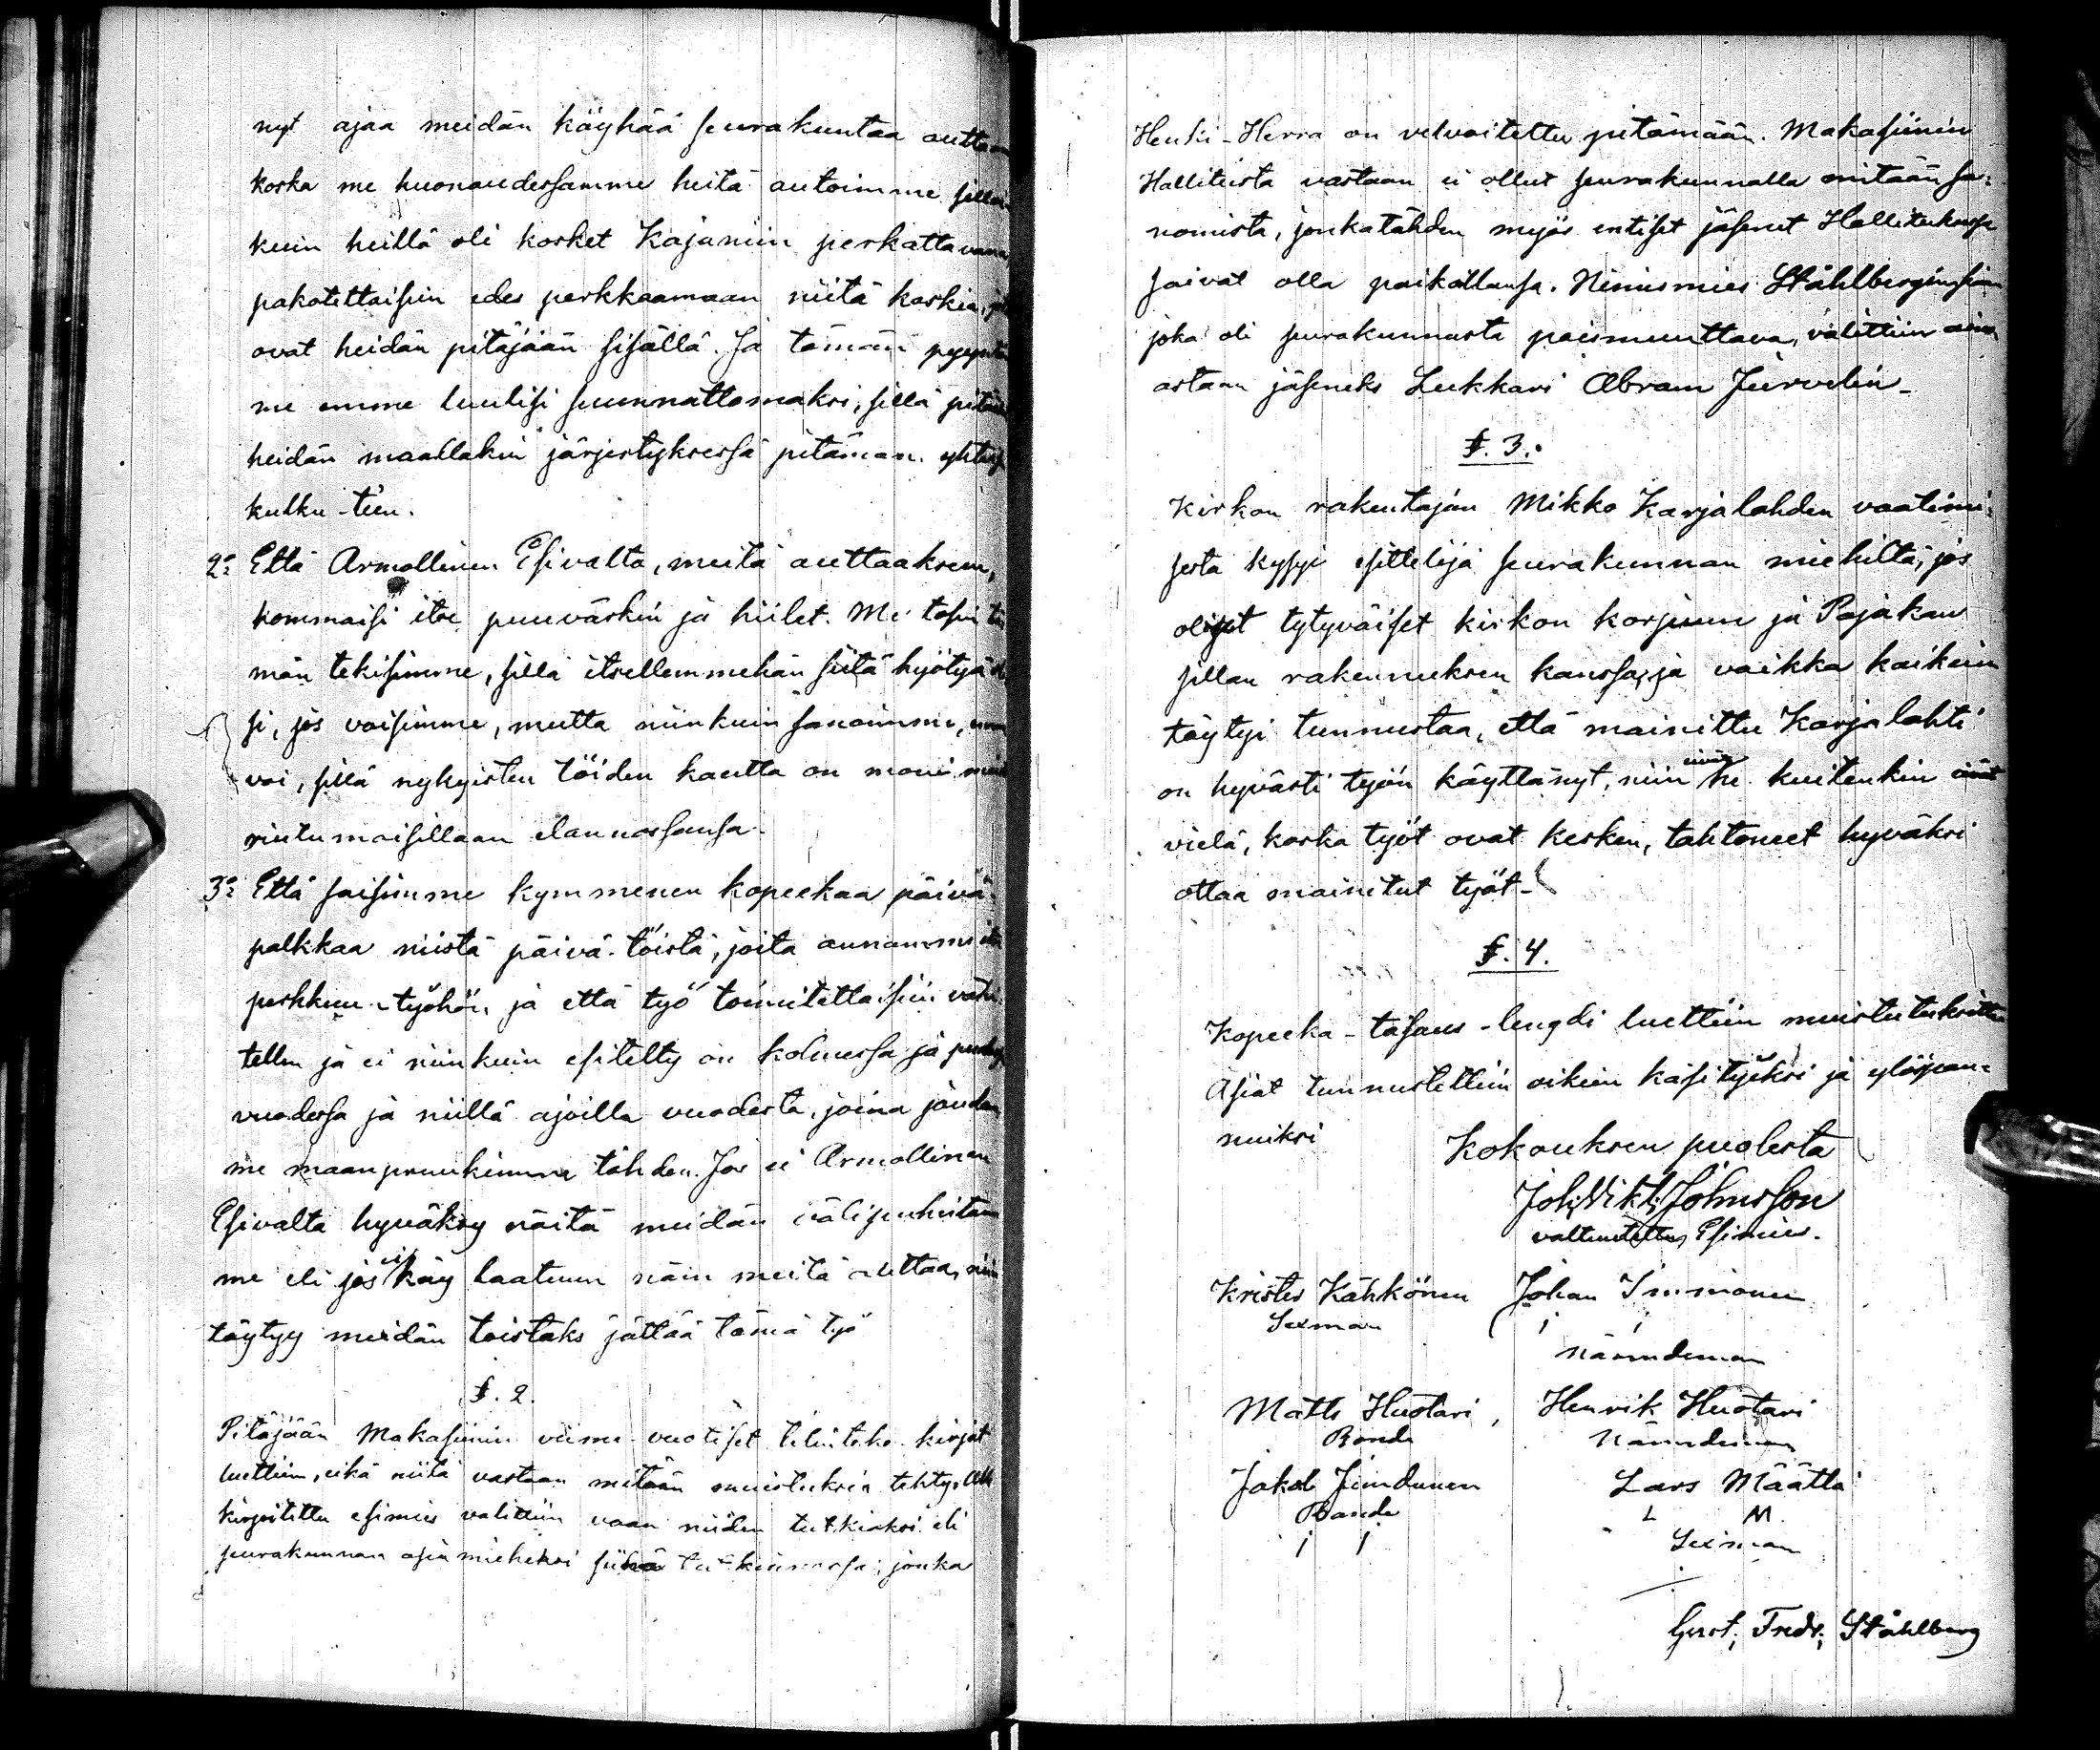 nyt ajaa meidän köyhää seurakuntaa auttaa
koska me huonoudessamme heitä autoimme silloin
kuin heillä oli kosket Kajaniin perkattavana,
pakotettaisiin edes perkkaamaan niitä koskia,
ovat heidän pitäjään sisällä. Ja tämän pyyntö
me emme luulisi suunnattomaksi, sillä pitää
heidän maallakin järjestyksessä pitämän
kulku-tien.
2:o Että Armollinen Esivalta, meitä auttaaksem,
kommaisi itse puuvärkin ja hiilet. Me tosin tä
män tekisimme, sillä itsellemmehän siitä hyötyä
si, jos voisimme, mutta niinkuin sanoimme,
voi, sillä nykyisten töiden kautta on moni
riutumaisillaan elannossansa.
3:o Että saisimme kymmenen kopeekaa päivä-
palkkaa niistä päivä-töistä, joita annamme
perkkuu-työhön, ja että työ toimitettaisiin vähi
tellen ja ei niinkuin esitelty on kolmessa ja
vuodessa ja niillä ajoilla vuodesta, joina joudam
me maanpruukimme tähden. Jos ei Armollinen
Esivalta hyväksy näitä meidän välipuheitam
me eli jos ei käy laatuun näin meitä auttaa, niin
täytyy meidän toistaks jättää tämä työ
§. 2.
Pitäjään Makasiinin viime-vuotiset tilinteko-kirjat
luettiin, eikä niitä vastaan mitään muistuksia tehty. Alle
kirjoitettu esimies valittiin vaan niiden tutkiaksi eli
seurakunnan asia mieheksi siinä tutkinnossa, jonka
Henki-Herra on velvoitettu pitämään. Makasiinin
Hallitusta vastaan ei ollut seurakunnalla mitään sa-
nomista, jonkatähden myös entiset jäsenet Hallituksessa
saivat olla paikallansa. Nimismies Ståhlbergin sian
joka oli seurakunnasta poismuuttava, valittiin ain
astaan jäseneks Lukkari Abram Jurvelin-
§. 3.
Kirkon rakentajan Mikko Karjalahden vaatimi-
sesta kysyi esittelijä seurakunnan miehiltä, jos
olisit tytyväiset kirkon korjuun ja Pajakan
sillan rakennuksen kanssa, ja vaikka kaikein
täytyi tunnustaa, että mainittu Karjalahti
on hyvästi työn käyttänyt, niin he kuitenkin eivät
vielä, koska työt ovat kesken, tahtoneet hyväksi
ottaa mainitut työt-
§. 4.
Kopeeka-tasaus-lengdi luettiin muistutuksitta
Asiat tunnustettiin oikein käsityiksi ja ylöspan-
nuiksi Kokouksen puolesta
Joh. Vikt. Johnsson
valtuutettu Esimies.
Krister Kähkönen Johan Immonen
Sexman Nämndeman
Matts Huotari, Henrik Huotari
Bonde Nämndeman
Jakob Jundunen Lars Määttä
Bonde L M
Sexman
Gust. Fredr. Ståhlberg